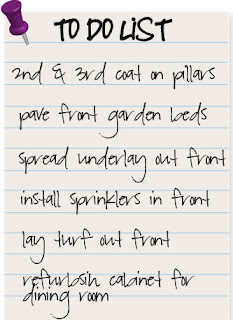 TO DO LIST
2nd & 3rd coat on pillars
pave front garden beds
spread underlay out front
install sprinklers in front
lay turf out front
refurbsih cabinet for
dining room